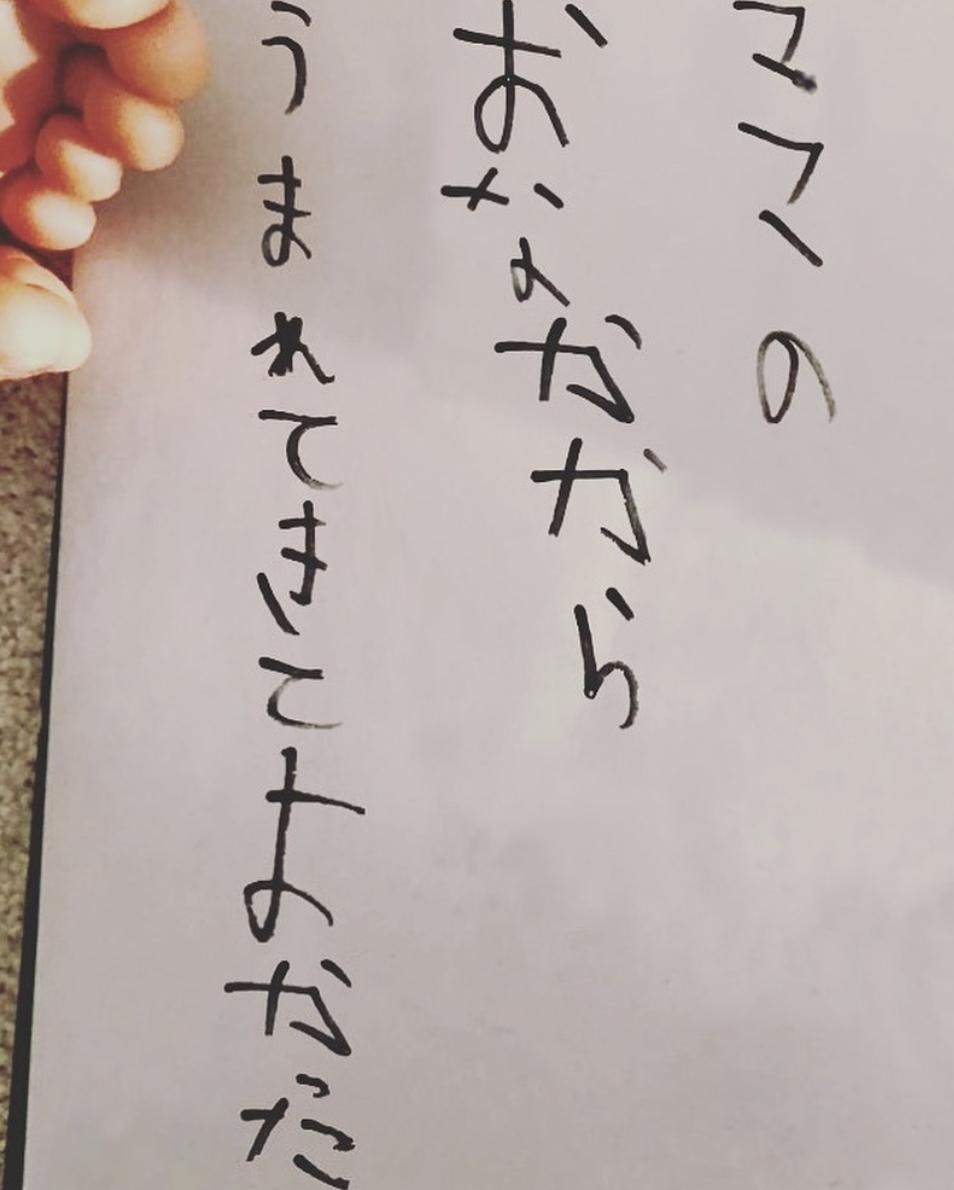 ママの
おなかから
うまれてきてよかた